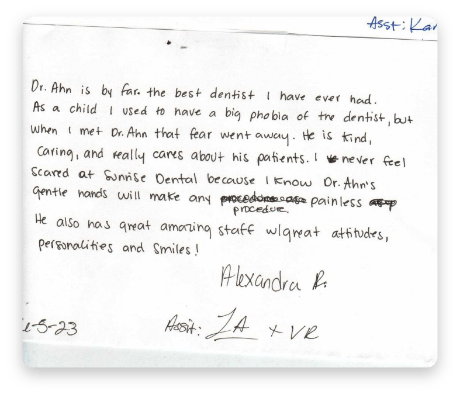 Asst: Kar
Dr. Ahn is by far the best dentist I have ever had.
As a child I used to have a big phobia of the dentist, but
when I met Dr. Ahn that fear went away. He is kind,
caring, and really cares about his patients. I never feel
scared at Sunrise Dental because I know Dr. Ahn's
gentle hands will make any painless
procedure.
He also has great amazing staff w/great attitudes,
personalities and smiles!
Alexandra R.
-5-23 Assit: ZA + VR